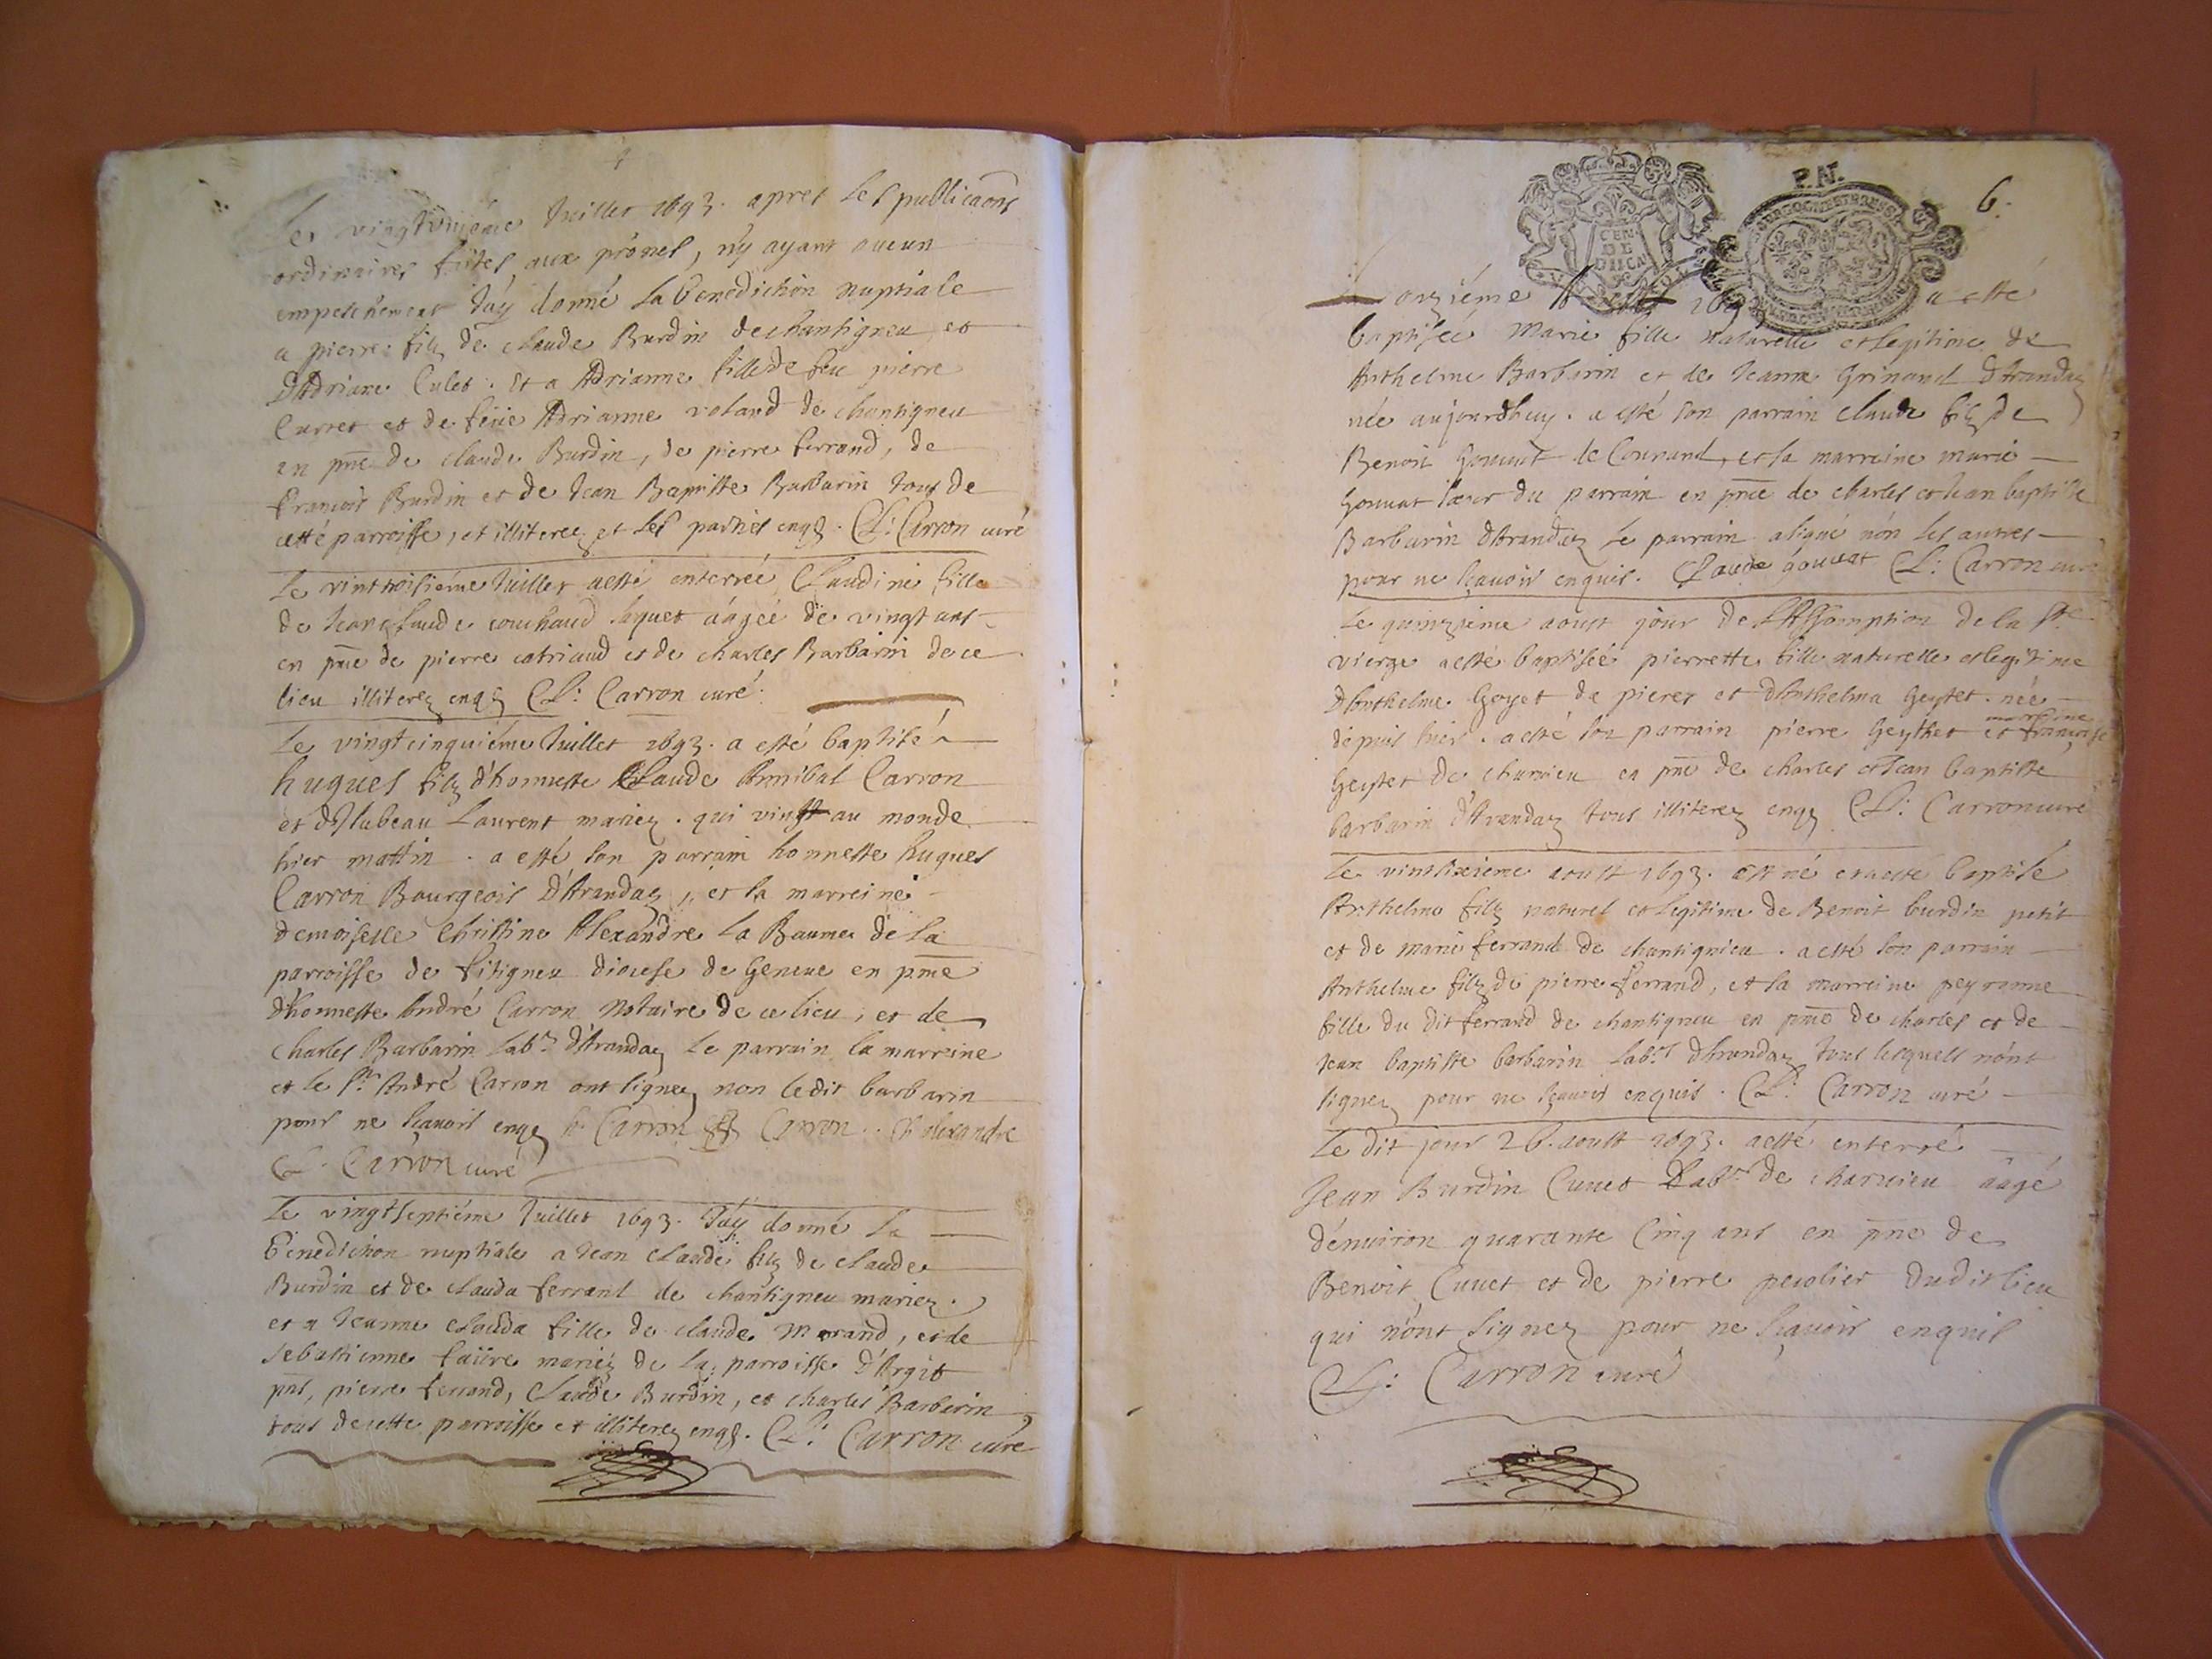 Le vingtuniéme Juillet 1693. apres les publicaons
ordinaires faites aux prônes, n'y ayant aucun
empeschement J'ay donné la benediction nuptiale
a pierre filz de claude Burdin de chantigneu et
d'Adriane Culet. Et a Adrianne fille de feu pierre
Curtet et de feüe Adrianne voland de chantigneu
en pnce de claude Burdin, de pierre ferrand, de
françois Burdin et de Jean Baptiste Barbarin tous de
cette parroisse, et illiterez et les parties enqs. Cl: Carron curé
Le vintroisiéme Juillet a esté enterrée Claudine fille
de Jean claude couchaud Jaquet âagée de vingt ans
en pnce de pierre catriaud et de charles Barbarin de ce
lieu illiterez enqs Cl: Carron curé.
Le vingt cinquiéme Juillet 1693. a esté baptisé
hugues filz d'honneste Claude Annibal Carron
et d'Ysabeau Laurent mariez. qui vint au monde
hier mattin. a esté son parrain honneste hugues
Carron Bourgeois d'Arandaz, et la marreine
demoiselle Christine Alexandre La Baume de la
parroisse de fitigneu diocese de Geneve en pnce
d'honneste André Carron Notaire de ce lieu, et de
charles Barbarin labr. d'Arandaz le parrain la marreine
et le Sr. André Carron ont signez non le dit barbarin
pour ne sçavoir enqs h. Carron Carron. C. alexandre
Cl. Carron curé
Le vingtseptiéme Juillet 1693. J'ay donné la
Benediction nuptiale a Jean claude filz de claude
Burdin et de clauda ferrand de chantigneu mariez.
et a Jeanne clauda fille de claude Morand, et de
sebastienne faiire mariéz de la parroisse d'Argit
pnts, pierre ferrand, claude Burdin, et charles Barbarin
tous de cette parroisse et illiterez enqs. Cl: Carron curé
P.N.
6.
CEN
DE
DIICA
onziéme 169 a esté
baptisée Marie fille naturelle et legitime de
Anthelme Barbarin et de Jeanne Grinand d'Arandaz
née aujourdhuy. a esté son parrain claude filz de
Benoit Gouvat de Counand, et la marreine marie
Gouvat soeur du parrain en pnce de charles et Jean baptiste
Barbarin d'Arandaz le parrain a signé nón les autres
pour ne sçavoir enquis. Claude gouvat Cl: Carron curé
Le quinziéme aoust jour de l'Assomption de la Ste
vierge a esté baptisée pierrette fille naturelle et legitime
d'Anthelme Goyet de pierez et d'Anthelma Geytet. née
depuis hier. a esté son parrain pierre Geythet et marreine françoise
Geytet de chumieu en pnce de charles et Jean baptiste
barbarin d'Arandaz tous illiterez enqs Cl: Carron curé
Le vintsixiéme aoust 1693. est né et a esté baptisé
Anthelme filz naturel et legitime de Benoit burdin petit
et de marie ferrand de chantignieu. a esté son parrain
Anthelme filz de pierre ferrand, et la marreine peyronne
fille du dit ferrand de chantigneu en pnce de charles et de
Jean baptiste barbarin labrs d'Arandaz tous lesquels n'ont
signez pour ne sçavoir enquis. Cl: Carron curé
Le dit jour 26. aoust 1693. a esté enterré
Jean Burdin Cuvet Labr. de charvieu âagé
d'environ quarante Cinq ans en pnce de
Benoit Cuvet et de pierre peyolier du dit lieu
qui n'ont signez pour ne sçavoir enquis
Cl: Carron curé